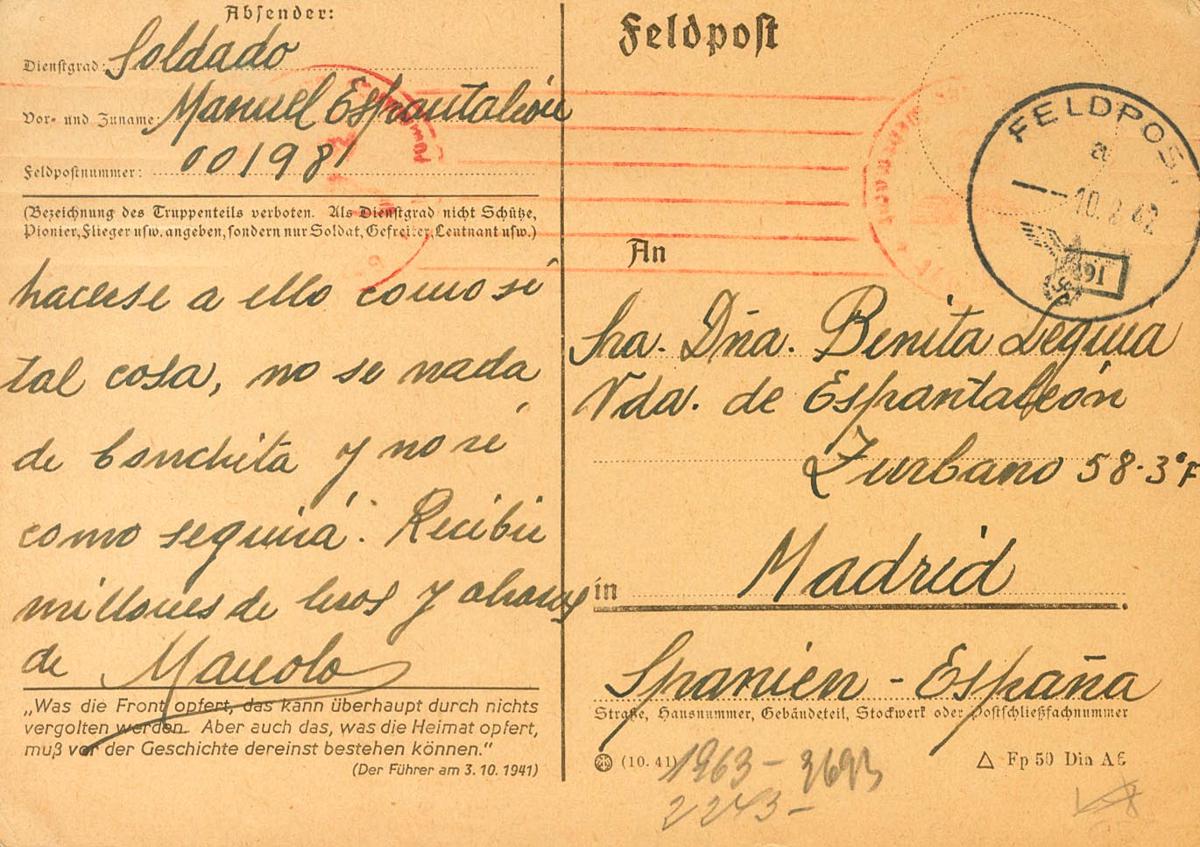 Absender:
Dienstgrad: Soldado
Vor- und Zuname: Manuel Espantaleón
Feldpostnummer: 001981
(Bezeichnung des Truppenteils verboten. Als Dienstgrad nicht Schütze,
Pionier, Flieger usw. angeben, sondern nur Soldat, Gefreiter, Leutnant usw.)
hacerse a ello como si
tal cosa, no se nada
de Conchita y no sé
como seguirá. Recibir
millones de besos y abrazos
de Manolo
„Was die Front opfert, das kann überhaupt durch nichts
vergolten werden. Aber auch das, was die Heimat opfert,
muß vor der Geschichte dereinst bestehen können."
(Der Führer am 3. 10. 1941)
Feldpost
FELDPOST
a
10. 2. 42
An
Sra. Dña. Benita Seguia
Vda. de Espantaleón
Zurbano 58-3º
in Madrid
Spanien - España
Straße, Hausnummer, Gebäudeteil, Stockwerk oder Postschließfachnummer
(10. 41)
Fp 50 Din A6
1963 - 3693
2243 -